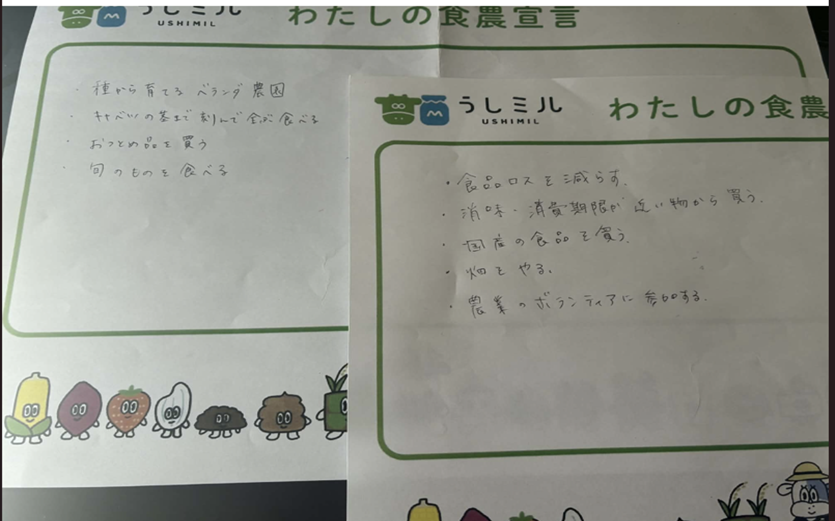 うしミル
USHIMIL
わたしの食農宣言
・種から育てる ベランダ 農園
・キャベツの芯まで刻んで全部食べる
・おつとめ品を買う
・旬のものを食べる
うしミル
USHIMIL
わたしの食農
・食品ロスを減らす。
・消味・消費期限が近い物から買う。
・国産の食品を買う。
・畑をやる。
・農業のボランティアに参加する。